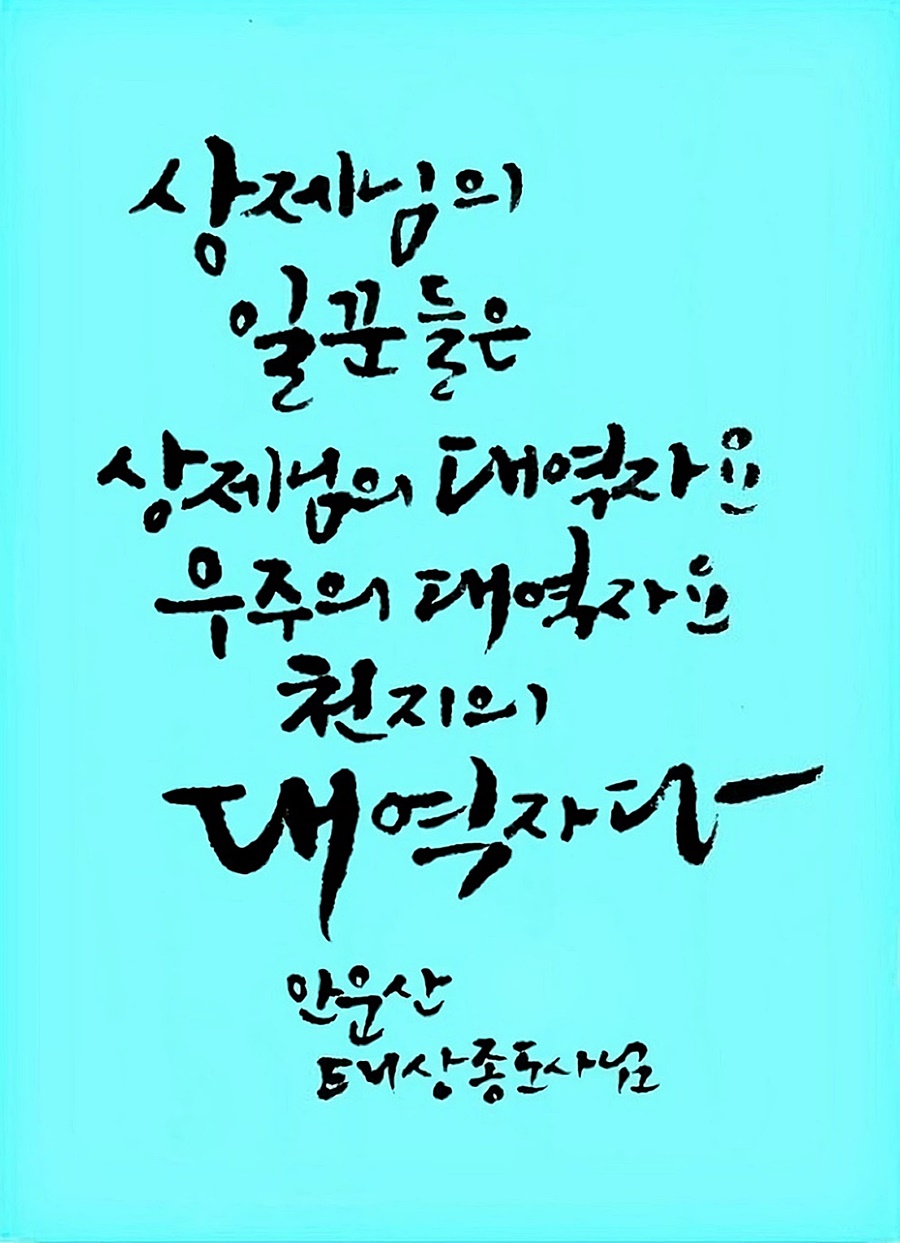 상제님의
일꾼들은
상제님의 대역자요
우주의 대역자요
천지의
대역자다
안운산
태상종도사님